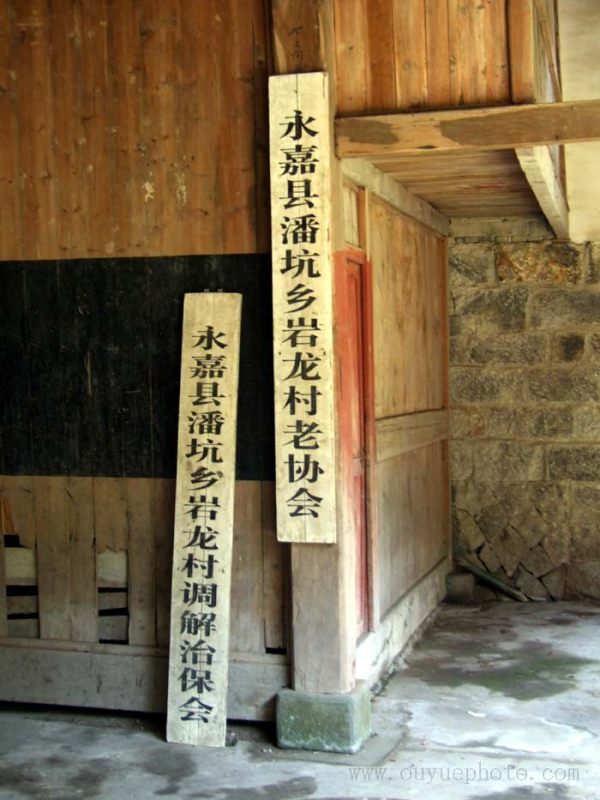 永嘉县潘坑乡岩龙村老协会
永嘉县潘坑乡岩龙村调解治保会
www.ouyuephoto.com